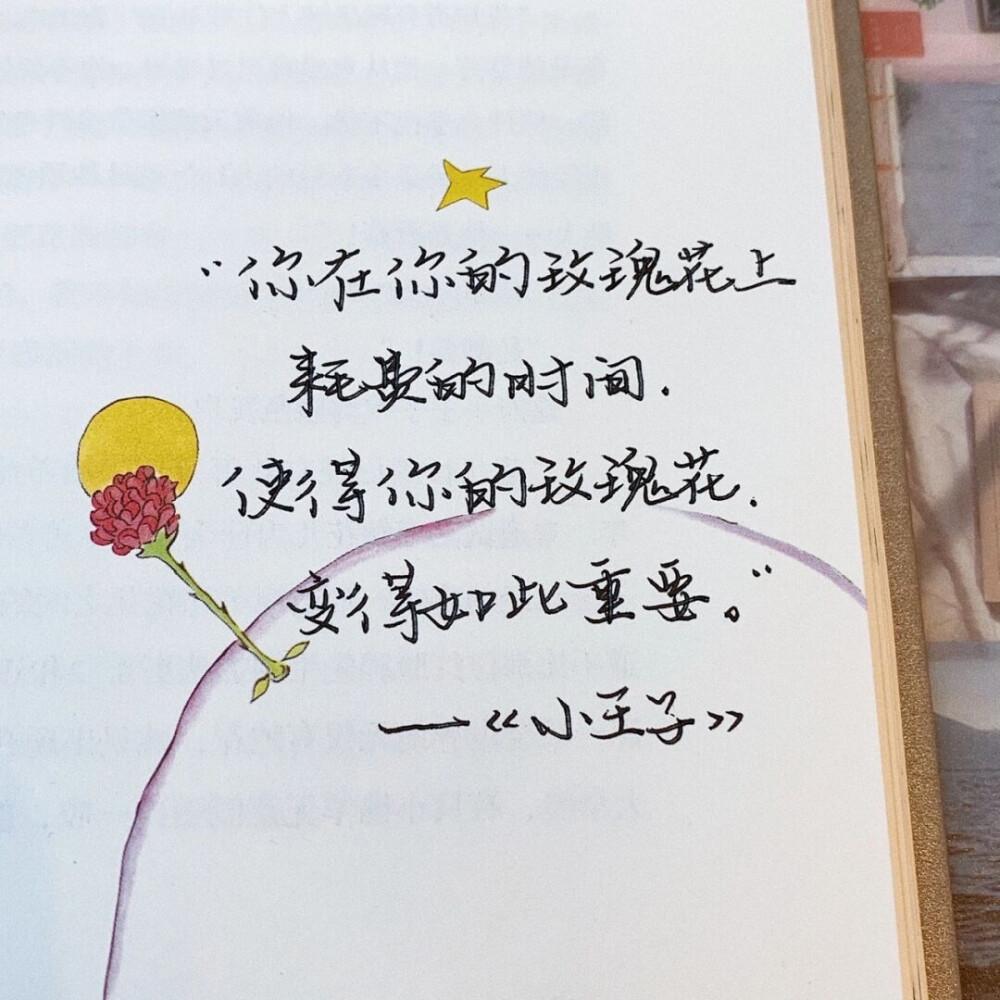 “你在你的玫瑰花上
耗费的时间.
使得你的玫瑰花.
变得如此重要。”
——《小王子》